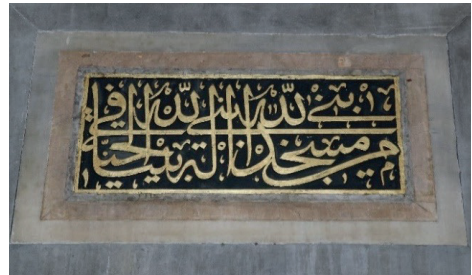 من بنى لله مسجدا بنى الله له بيتا فى الجنة